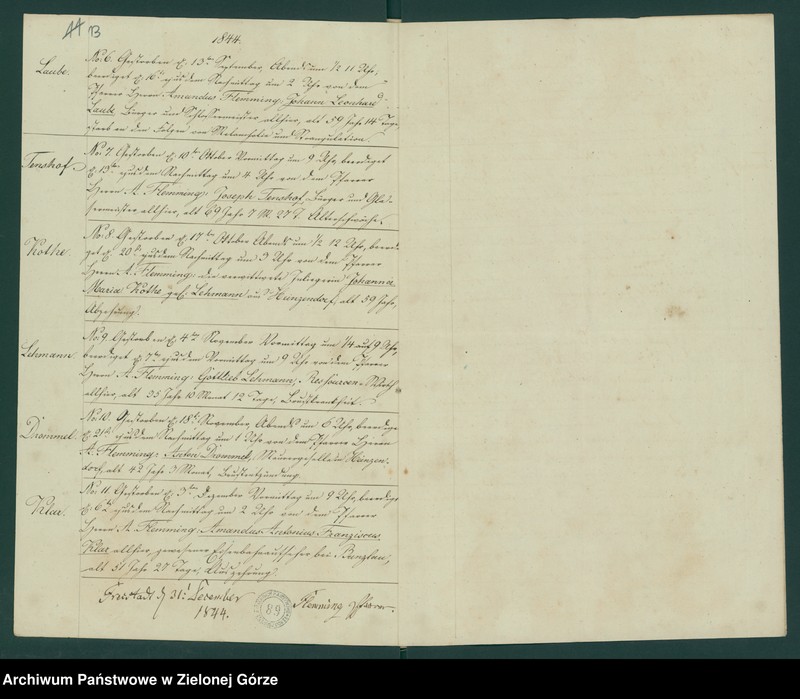 44 B
1844.
Laube.
No: 6. Gestorben d. 13ten September, Abends um ½ 11 Uhr,
beerdiget d. 16t ejusdem Nachmittag um 2 Uhr von dem
Pfarrer Herrn Amandus Flemming, Johann Leonhard
Laube Bürger und Schlossermeister allhier, alt 59 Jahr 14 Tage,
starb an den Folgen von Melancholie und Strangulation.
Tenshof.
No: 7. Gestorben d. 10ten Oktober Vormittag um 9 Uhr, beerdiget
d. 13ten ejusdem Nachmittag um 4 Uhr von dem Pfarrer
Herrn A. Flemming: Joseph Tenshof, Bürger und Gla-
sermeister allhier, alt 69 Jahr 7 M. 27 T. Altersschwäche.
Kothe.
No: 8. Gestorben d. 17ten Oktober Abends um ½ 12 Uhr, beerdi-
get d. 20t ejusdem Nachmittag um 3 Uhr von dem Pfarrer
Herrn A. Flemming: die verwittwete Johanna
Maria Kothe, geb. Lehmann aus Heinzendorf, alt 59 Jahr,
Abzehrung.
Lehmann.
No: 9. Gestorben d. 4ten November Vormittag um ¼ auf 9 Uhr,
beerdiget d. 7ten ejusdem Vormittag um 9 Uhr von dem Pfarrer
Herrn A. Flemming: Gottlieb Lehmann, Ressourcen-
allhier, alt 35 Jahr 10 Monat 12 Tage, Brustkrankheit.
Drommel.
No: 10. Gestorben d. 18t November, Abends um 6 Uhr, beerdiget
d. 21t ejusdem Nachmittag um 1 Uhr von dem Pfarrer Herrn
A. Flemming: Anton Drommel, Maurergeselle in Heinzen-
dorf, alt 42 Jahr 3 Monat, Brustentzündung.
Klar.
No: 11. Gestorben d. 3ten Dezember Vormittag um 9 Uhr, beerdiget
d. 6t ejusdem Nachmittag um 2 Uhr von dem Pfarrer
Herrn A. Flemming: Amandus Antonius Franziscus
Klar allhier, gewesener Eisenbahnaufseher bei Bunzlau,
alt 51 Jahr 20 Tage, Auszehrung.
Freistadt d 31t December
1844.
89
Flemming Pfarrer.
Archiwum Państwowe w Zielonej Górze